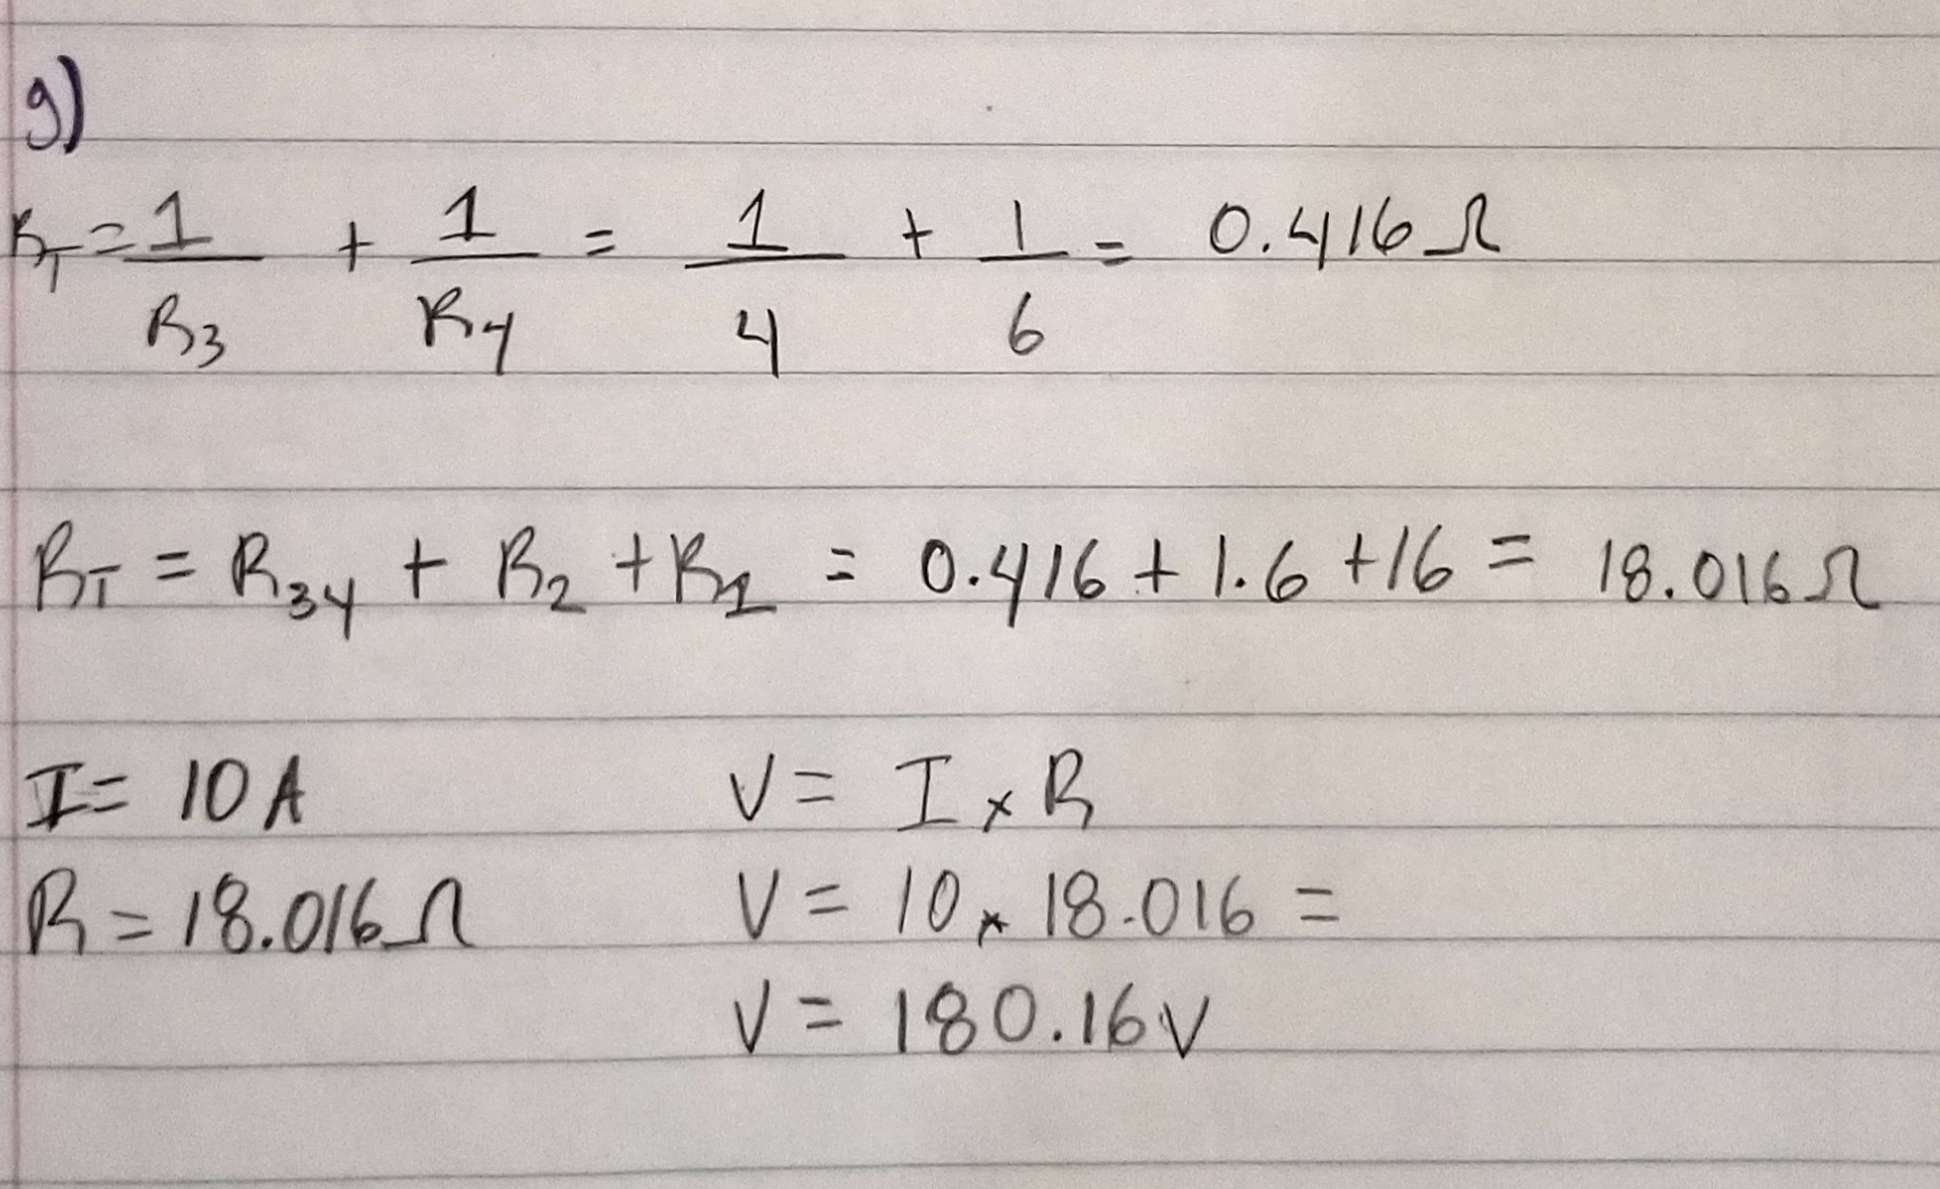 g)
R_T = 1/R3 + 1/R4 = 1/4 + 1/6 = 0.416 Ω
R_T = R34 + R2 + R1 = 0.416 + 1.6 + 16 = 18.016 Ω
I = 10 A V = I × R
R = 18.016 Ω V = 10 × 18.016 =
V = 180.16 V